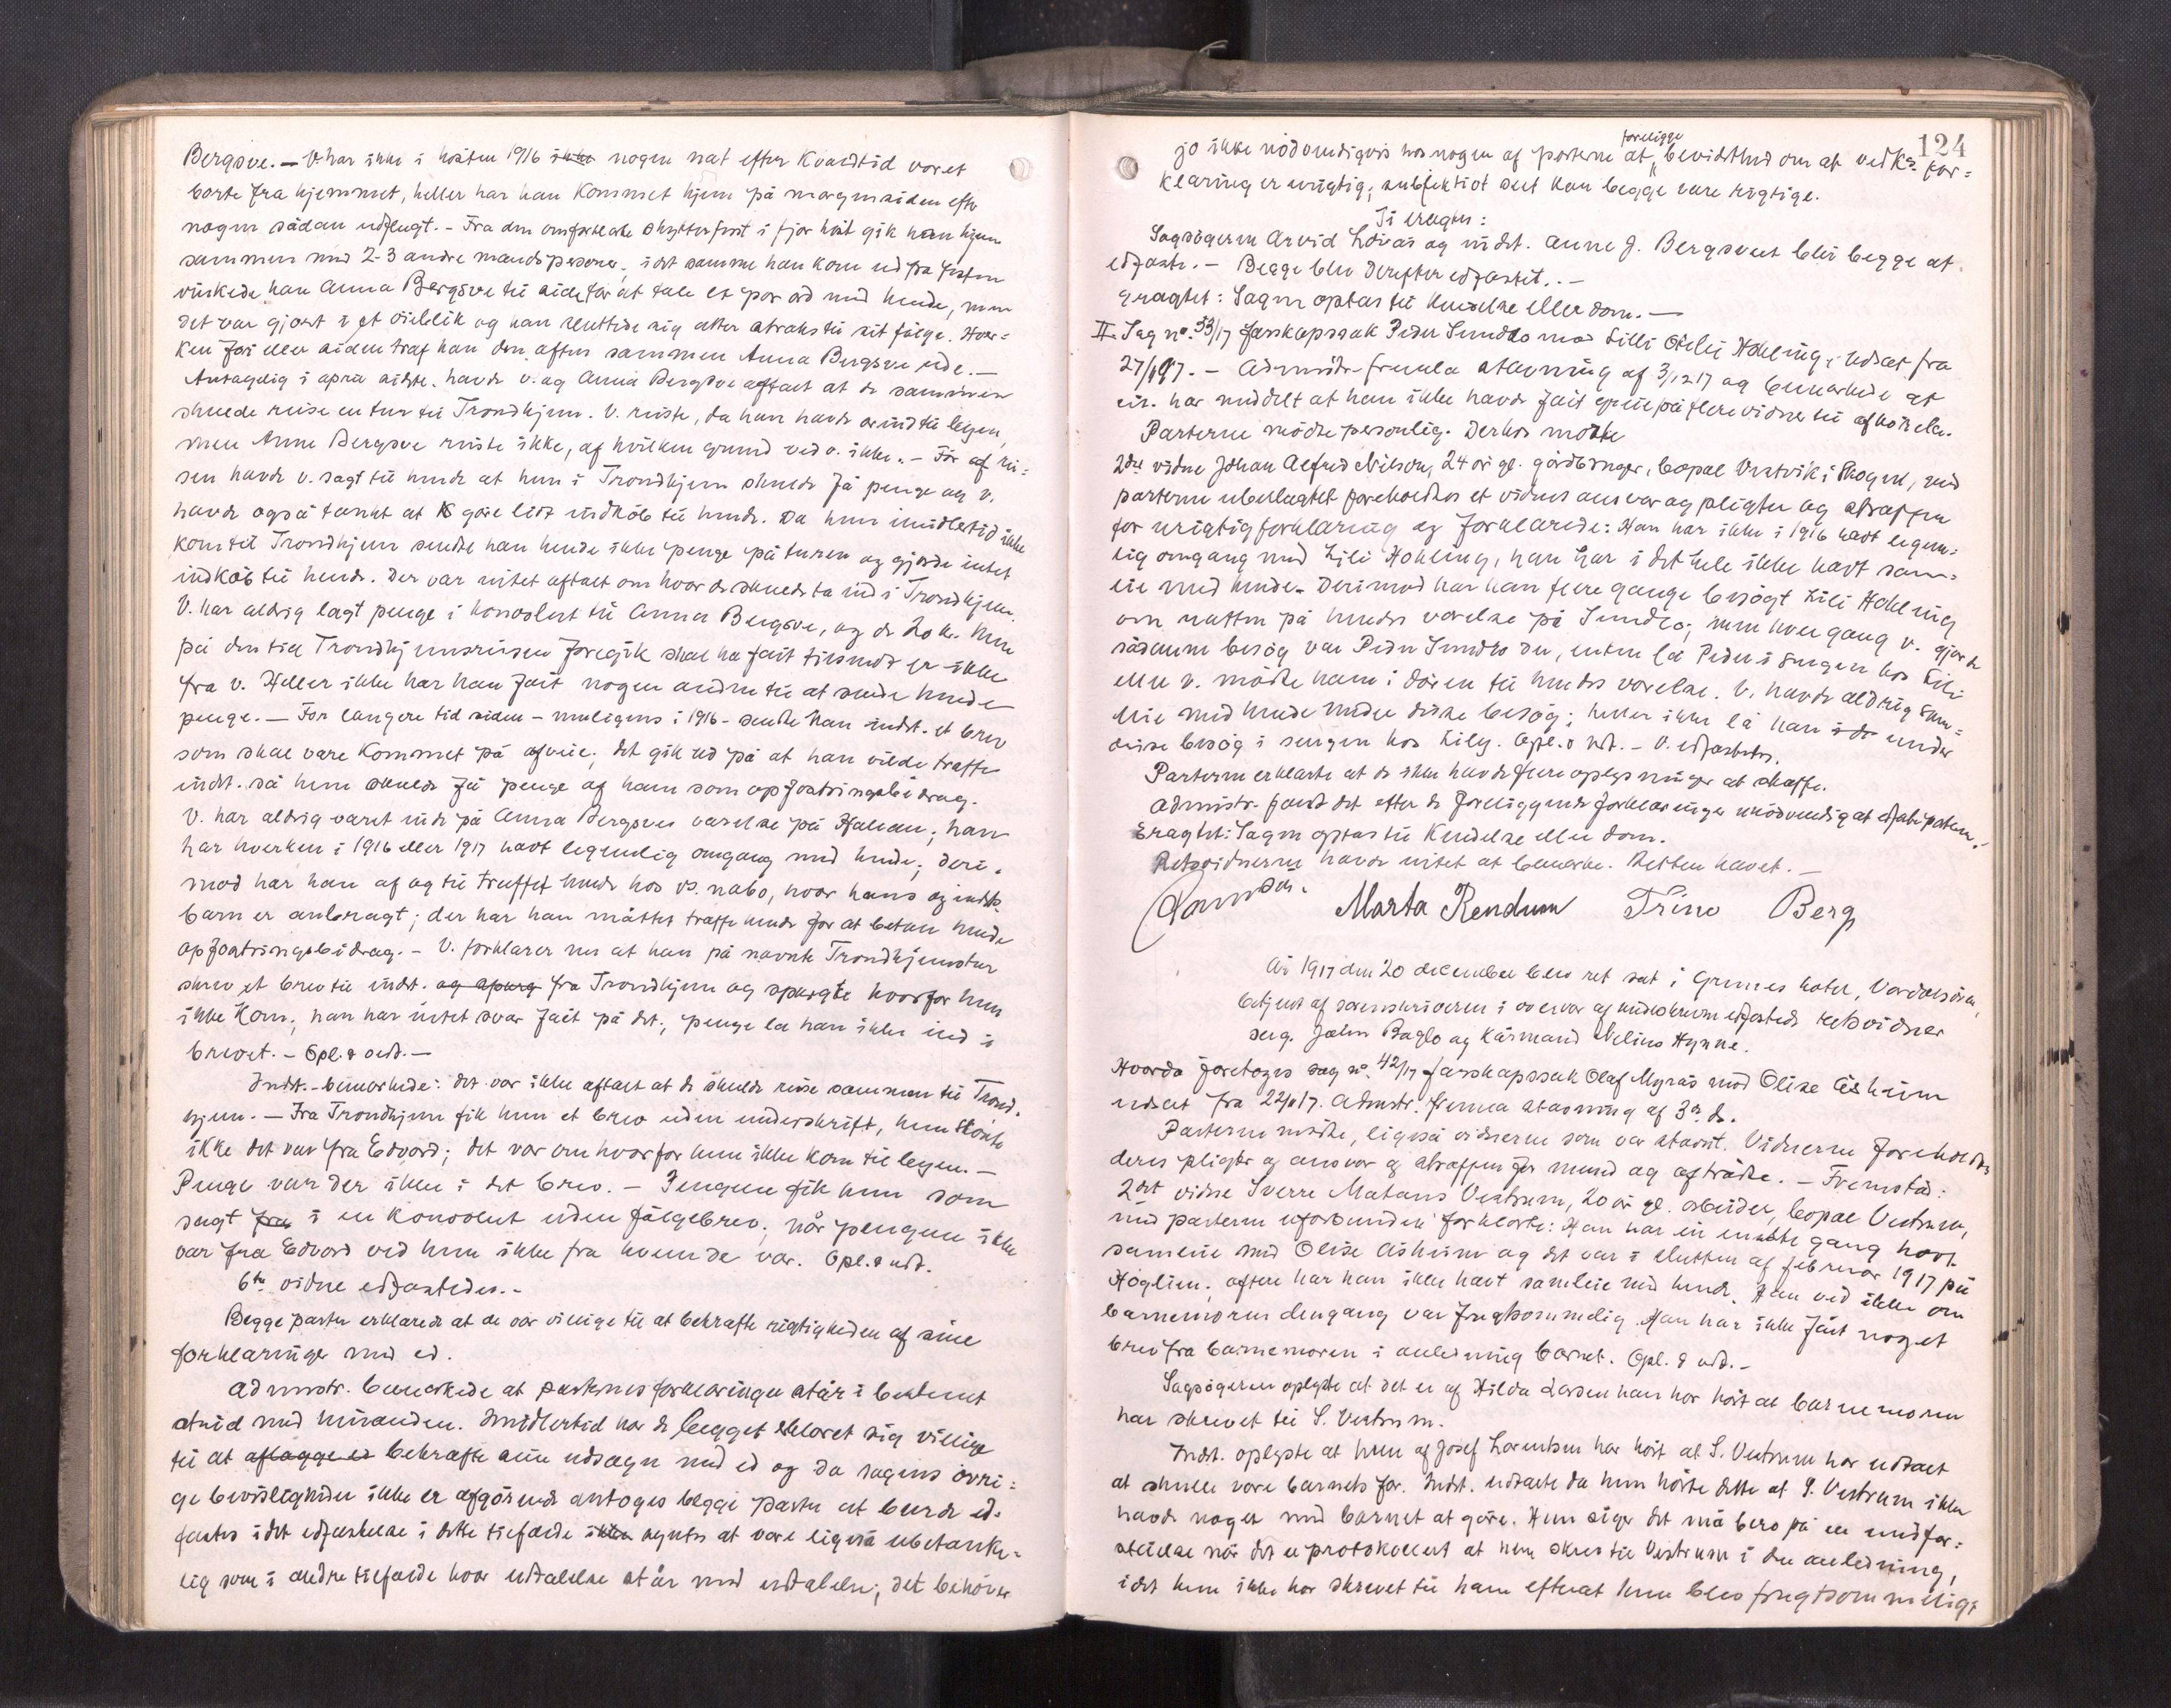 Bergsve. — V. har ikke i høsten 1916 ikke nogen nat efter kvældtid voret
borte fra hjemmet, heller har han kommet hjem på morgensiden efter
nogen sådan udflugt. - Fra den omforklarte skytterfest i fjor høst gik han hjem
sammen med 2-3 andre mandspersoner; idet samme han kom ud fra festen
vinkede han Anna Bergsve til side for at tale et par ord med hende, men
det var gjort i et øieblik og han sluttede sig atter straks til sit følge. Hver-
ken før eller siden traf han den aften sammen Anna Bergsve ude. —
Antagelig i april sidste. havde v. og Anna Bergsve aftalt at de sammen
skulde reise en tur til Trondhjem. V. reiste, da han havde ærind til legen,
men Anne Bergsve reiste ikke, af hvilken grund ved v. ikke. - Før af rei-
sen havde v. sagt til hende at hun i Trondhjem skulde få penge og v.
havde også tænkt at gøre lidt indkøb til hende. Da hun imidlertid ikke
kom til Trondhjem sendte han hende ikke penge på turen og gjorde intet
indkøb til hende. Der var intet aftalt om hvor de skulde ta ind i Trondhjem.
V. har aldrig lagt penge i konvolut til Anna Bergsve, og de 20 kr. hun
på den tid Trondhjemsreisen foregik skal ha fåit tilsendt er ikke
fra v. Heller ikke har han fåit nogen anden til at sende hende
penge. — For længere tid siden - muligens i 1916 - sendte han indst. et brev
som skal være kommet på afveie; det gik ud på at han vilde træffe
indst. så hun skulde få penge af ham som opfostringsbidrag.
V. har aldrig været inde på Anna Bergsves værelse på Halsan; han
har hverken i 1916 eller 1917 havt legemlig omgang med hende; deri-
mod har han af og til truffet hende hos vs. nabo, hvor hans og indst.
barn er anbragt; der har han måttet træffe hende for at betale hende
opfostringsbidrag. - V. forklarer nu at han på nævnte Trondhjemstur
skrev et brev til indst. og spurg fra Trondhjem og spurgte hvorfor hun
ikke kom; han har intet svar fåit på det; penge la han ikke ind i
brevet. - Opl. & vedt. —
Indst. bemærkede: det var ikke aftalt at de skulde reise sammen til Trond-
hjem. — Fra Trondhjem fik hun et brev uden underskrift, hun
ikke det var fra Edvard; det var om hvorfor hun ikke kom til legen. —
Penge var der ikke i det brev. — Pengene fik hun som
sagt fra i en konvolut uden følgebrev; når pengene ikke
var fra Edvard ved hun ikke fra hvem de var. Opl. & vedt.
6te vidne edfæstedes. -
Begge parter erklærede at de var villige til at bekræfte rigtigheden af sine
forklaringer med ed.
Admstr. bemærkede at parternes forklaringer står i bestemt
strid med hinanden. Imidlertid har de begge erklæret sig villige
til at aflægge ed bekræfte sine udsagn med ed og da sagens øvri-
ge bevisligheder ikke er afgørende antoges begge parter at burde ed-
fæstes idet edfæstelse i dette tilfælde ikke syntes at være ligeså ubetænke-
lig som i andre tilfælde hvor udtalelse står mod udtalelse; det behøver
124
foreligge
jo ikke nødvendigvis hos nogen af parterne at bevidsthed om at vedks for-
klaring er urigtig; subjektivt set kan begge være rigtige.
Ti eragtes:
Sagsøgeren Arvid Løvås og indst. Anne J. Bergsveet blir begge at
edfæste. — Begge blev derefter edfæstet. . —
Eragtet: Sagen optas til kendelse eller dom. —
II. Sag nº 33/17 farskapssak Peder Sundlo mod Lilli Otelie Hokling, udsat fra
27/1197. - Admstr. fremla stævning af 3/1217 og bemærkede at
har meddelt at han ikke havde fåit greie på flere vidner til afhørelse.
Parterne mødte personlig. Derhos mødte
2det vidne Johan Alfred Nilsen, 24 år gl. gårdbruger, bopæl Vestvik i Skogn, med
parterne ubeslægtet foreholdtes et vidnes ansvar og pligter og straffen
for urigtig forklaring og forklarede: Han har ikke i 1916 havt legem-
lig omgang med Lilli Hokling, han har i det hele ikke havt sam-
leie med hende. Derimod har han flere gange besøgt Lili Hokling
om natten på hendes værelse på Sundlo; men hver gang v. gjorde
sådanne besøg var Peder Sundlo der, enten lå Peder i sengen hos Lili
eller v. mødte ham i døren til hendes værelse. V. havde aldrig sam-
leie med hende under disse besøg; heller ikke lå han i de under
disse besøg i sengen hos Lily. Opl. & vedt. — V. edfæstedes.
Parterne erklærte at de ikke havde flere oplysninger at skaffe.
Admstr. fandt det efter de foreliggende forklaringer unødvendig at edfæste parterne.
Eragtet: Sagen optas til kendelse eller dom.
Retsvidnerne havde intet at bemærke. Retten hævet. —
Marta Rendum Trine Berg
År 1917 den 20 december blev ret sat i Grunnes hotel, Verdalsøren,
betjent af sorenskriveren i overvær af undeskrevne edfæstede retsvidner
serg. John Baglo og kårmand Nelius Hynne.
Hvorda foretoges sag nº. 42/17 farskapssak Olaf Myrås mod Olise Åsheim
udsat fra 22/1117. Admstr. fremla stævning af 3. ds.
Parterne mødte, ligeså vidnerne som var stævnt. Vidnerne foreholdtes
deres pligter og ansvar og straffen for mened og aftrådte. — Fremstod:
2det vidne Sverre Matæus Vestrum, 20 år gl. arbeider, bopæl Vestrum,
med parterne uforbunden forklarte: Han har en eneste gang havt
samleie med Olise Åsheim og det var i slutten af februar 1917 på
Høglien; oftere har han ikke havt samleie med hende. Han ved ikke om
barnemoren dengang var frugtsommelig. Han har ikke fåit noget
brev fra barnemoren i anledning barnet. Opl. & vedt. -
Sagsøgeren oplyste at det er af Hilda Larsen han har hørt at barnemoren
har skrevet til S. Vestrum.
Indst. oplyste at hun af Josef Lorentsen har hørt at S. Vestrum har udtalt
at skulle være barnets far. Indst. udtalte da hun hørte dette at S. Vestrum ikke
havde noget med barnet at gøre. Hun siger det må bero på en misfor-
ståelse når det er protokolleret at hun skrev til Vestrum i den anledning,
idet hun ikke har skrevet til ham efterat hun blev frugtsommelig.